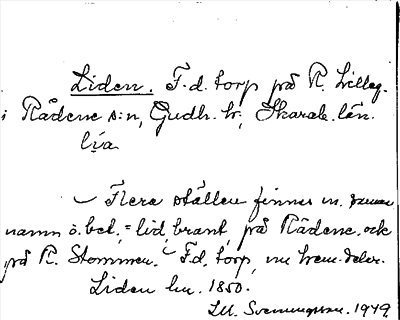 Liden. F.d. torp på R. Lilleg.
i Rådene s:n, Gudh. hr, Skarab. län.
li̠a
Flera ställen finnes m. samma
namn o. bet. = lid, brant, på Rådene, och
på R. Stommen. F.d. torp, nu hem.delar.
Liden hn. 1850.
LM. Svenungsson. 1949.